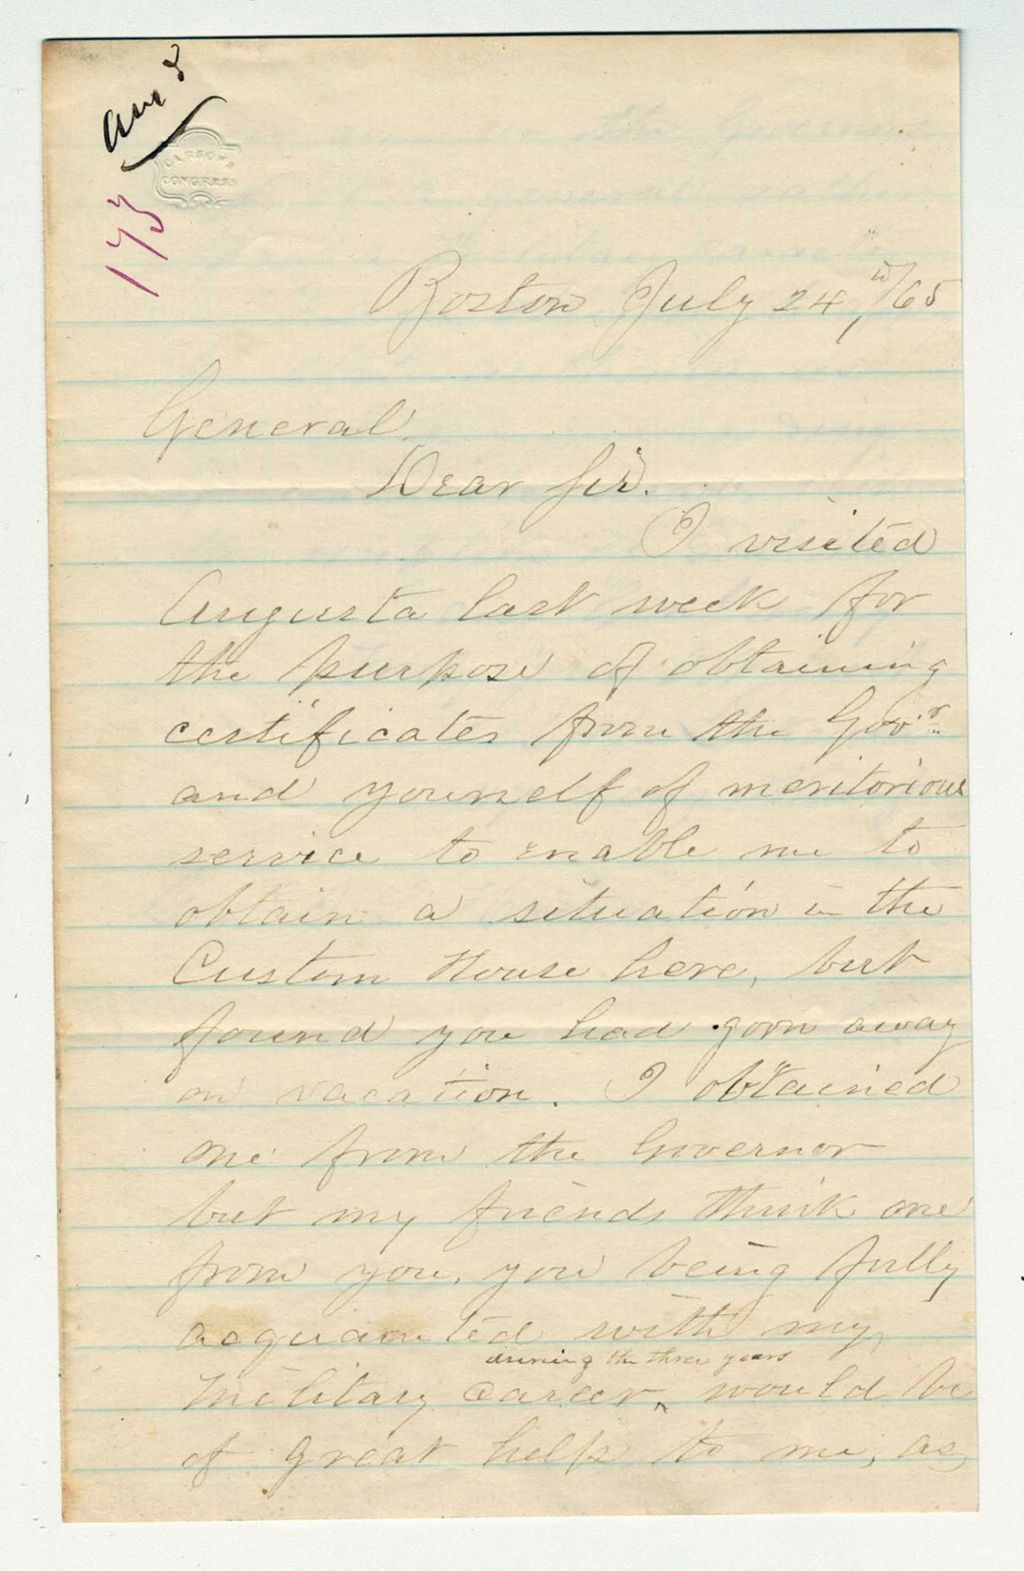 Ans
173
CARSON'S
CONGRESS
Boston July 24, /65
General.
Dear Sir.
I visited
Augusta last week for
the purpose of obtaining
certificates from the Gov.r
and yourself of meritorious
service to enable me to
obtain a situation in the
Custom House here, but
found you had goon away
on vacation. I obtained
one from the Governor
but my friends think one
from you, you being fully
acquainted with my
during the three years
Military Career ^ would be
of great help to me, as